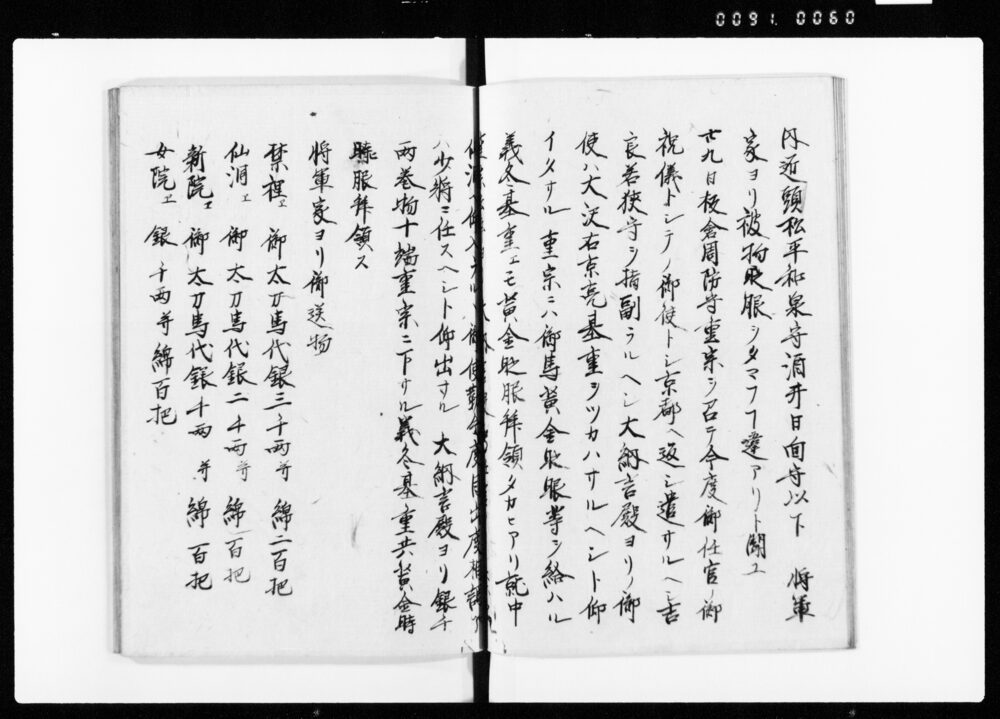 0091.0060
丹近頭松平和泉守酒井日向守以下 将軍
家ヨリ被物時服ヲタマフフ違アリト聞エ
廿九日板倉周防守重宗ヲ召テ今度御任官ノ御
祝儀トシテノ御使トシ京都ヘ返シ遣サルヘシ吉
良若狭守ヲ指副ラルヘシ大納言殿ヨリノ御
使ハ大沢右京亮基重ヲツカハサルヘシト仰
イタサル 重宗ニハ御馬黄金時服等ヲ給ハル
義冬基重エモ黄金時服拝領タカヒアリ就中
ハ少将ニ任スヘシト仰出サル 大納言殿ヨリ銀千
両巻物十端重宗ニ下サル義冬基重共黄金時
服拝領ス
将軍家ヨリ御送物
禁裡エ 御太刀馬代銀三千両并 綿二百把
仙洞エ 御太刀馬代銀二千両并 綿百把
新院エ 御太刀馬代銀千両并 綿百把
女院エ 銀千両并綿百把